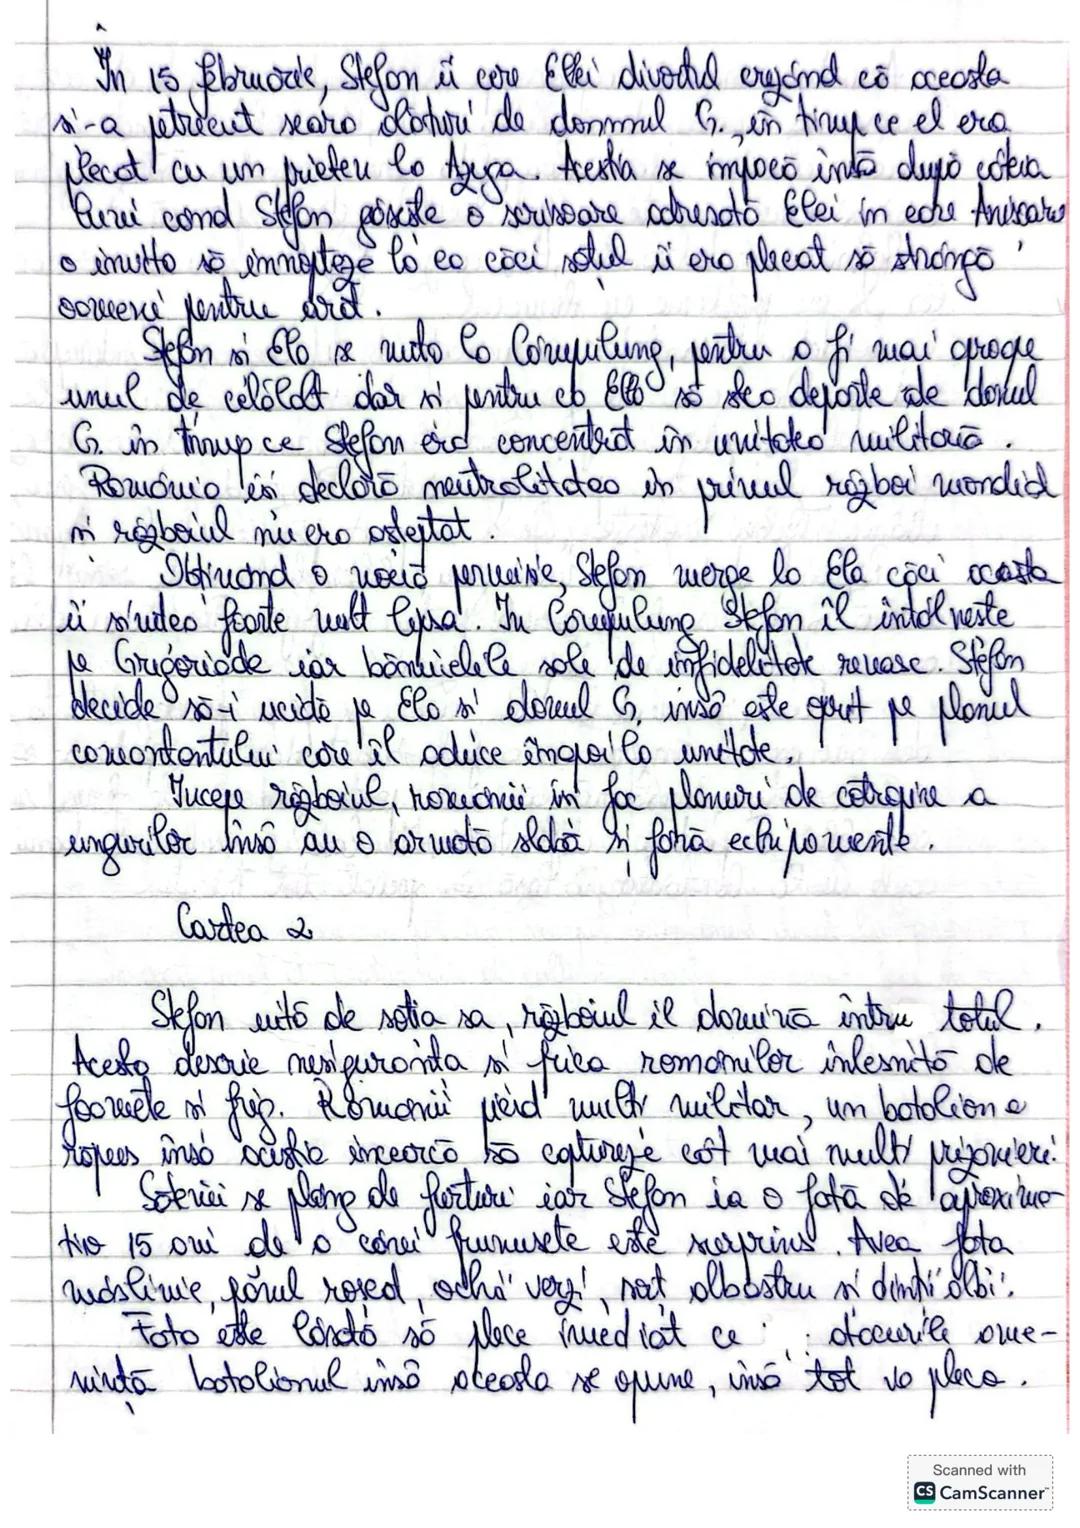 În 15 februarie, Stefan îi cere Elei divortul crezând că aceasta
si-a petrecut seara alături de domnul G., în timp ce el era
plecat cu un prieten la Azuga. Acestia se împacă însă după câteva
luni cand Stefan găseste o scrisoare adresată Elei in care Anisoara
o invita să înnopteze la ea căci sotul ii era plecat să strângă
oameni pentru arat.
Stefan si Ela se muta la Câmpulung, pentru a fi mai aproape
unul de celălalt dar si pentru ca Ela să stea departe de domul
G. in timp ce Stefan era concentrat în unitatea militară.
România isi declară neutralitatea in primul război mondial
si războiul nu era asteptat.
Obtinand o nouă permisie, Stefan merge la Ela căci aceasta
ii simtea foarte mult lipsa. In Campulung Stefan îl intâlneste
pe Grigoriade iar bănuielele sale de infidelitate renasc. Stefan
decide să-i ucidă pe Ela si domul G. insă este oprit pe planul
comandantului care îl aduce înapoi la unitate.
Incepe războiul, romanii isi fac planuri de cotropire a
ungurilor însă au o armată slabă si fără echipamente.
Cartea 2
Stefan uită de sotia sa, războiul il domina întru totul.
Acesta descrie nesiguranta si frica romanilor inlesnită de
foamete si frig. Romanii pierd multi militar, un batalion a
ropees însă acestia incearcă să captureze cât mai multi prizonieri.
Sătenii se plang de furturi iar Stefan ia o fată de aproxima-
tiv 15 ani de a cărei frumusete este surprins. Avea fata
măslinie, părul roscat, ochii verzi, sort albastru si dintii albi.
Fata este lăsată să plece imediat ce atacurile ame-
nintă batalionul insă aceasta se opune, insă tot va pleca.
Scanned with
CS CamScanner